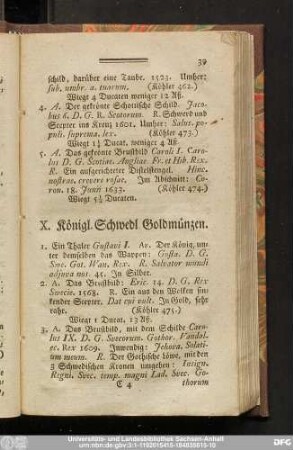 39
schild, darüber eine Taube. 1573. Umher:
sub. umbr. a. tuarum. (Köhler 462.)
Wiegt 4 Ducaten weniger 12 Aß.
4. A. Der gekrönte Schottische Schild. Jaco-
bus 6. D. G. R. Scotorum. R. Schwerd und
Scepter ins Kreuz 1601. Umher: Salus. po-
puli. suprema. lex. (Köhler 473.)
Wiegt 1½ Ducat. weniger 4 Aß.
5. A. Das gekrönte Brustbild Caroli I. Caro-
lus D. G. Scotiae. Angliae. Fr. et Hib. Rex.
R. Ein aufgerichteter Distelstengel. Hinc.
nostrae. crevere rosae. Im Abschnitt: Co-
ron. 18. Junii 1633. (Köhler 474.)
Wiegt 5½ Ducaten.
X. Königl. Schwedl Goldmünzen.
1. Ein Thaler Gustavi I. Av. Der König, un-
ter demselben das Wappen: Gosta. D. G.
Swe. Got. Wan. Rex. R. Salvator mundi
adjuva nos. 45. In Silber.
2. A. Das Brustbild: Eric. 14. D. G. Rex
Suecie. 1565. R. Ein aus den Wolken sin-
kender Scepter. Dat cui vult. In Gold, sehr
rahr. (Köhler 475.)
Wiegt 1 Ducat. 13 Aß.
3. A. Das Brustbild, mit dem Schilde Caro-
lus IX. D. G. Suecorum. Gothor. Vandal.
ec. Rex 1609. Inwendig: Jehova. Solati-
um meum. R. Der Gothische Löwe, mit den
3 Schwedischen Kronen umgeben: Insign.
Regni. Svec. temp. magni Lad. Svec. Go-
C 4 thorum
Universitäts- und Landesbibliothek Sachsen-Anhalt
urn:nbn:de:gbv:3:1-1192015415-184035813-10
DFG